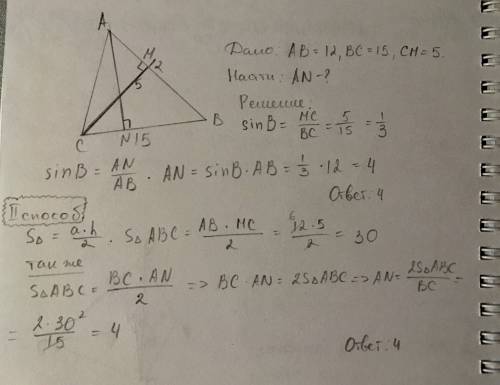 A
M
12
5
C
N 15
B
Дано: AB = 12, BC = 15, CM = 5.
Найти: AN - ?
Решение:
sinB = MC/BC = 5/15 = 1/3
sinB = AN/AB . AN = sinB · AB = 1/3 · 12 = 4
Ответ: 4
II способ
S△ = a·h/2 . S△ABC = AB · MC/2 = 12·5/2 = 30
6
так же
S△ABC = BC · AN/2 => BC · AN = 2S△ABC => AN = 2S△ABC/BC =
= 2·30/15 = 4
2
Ответ: 4